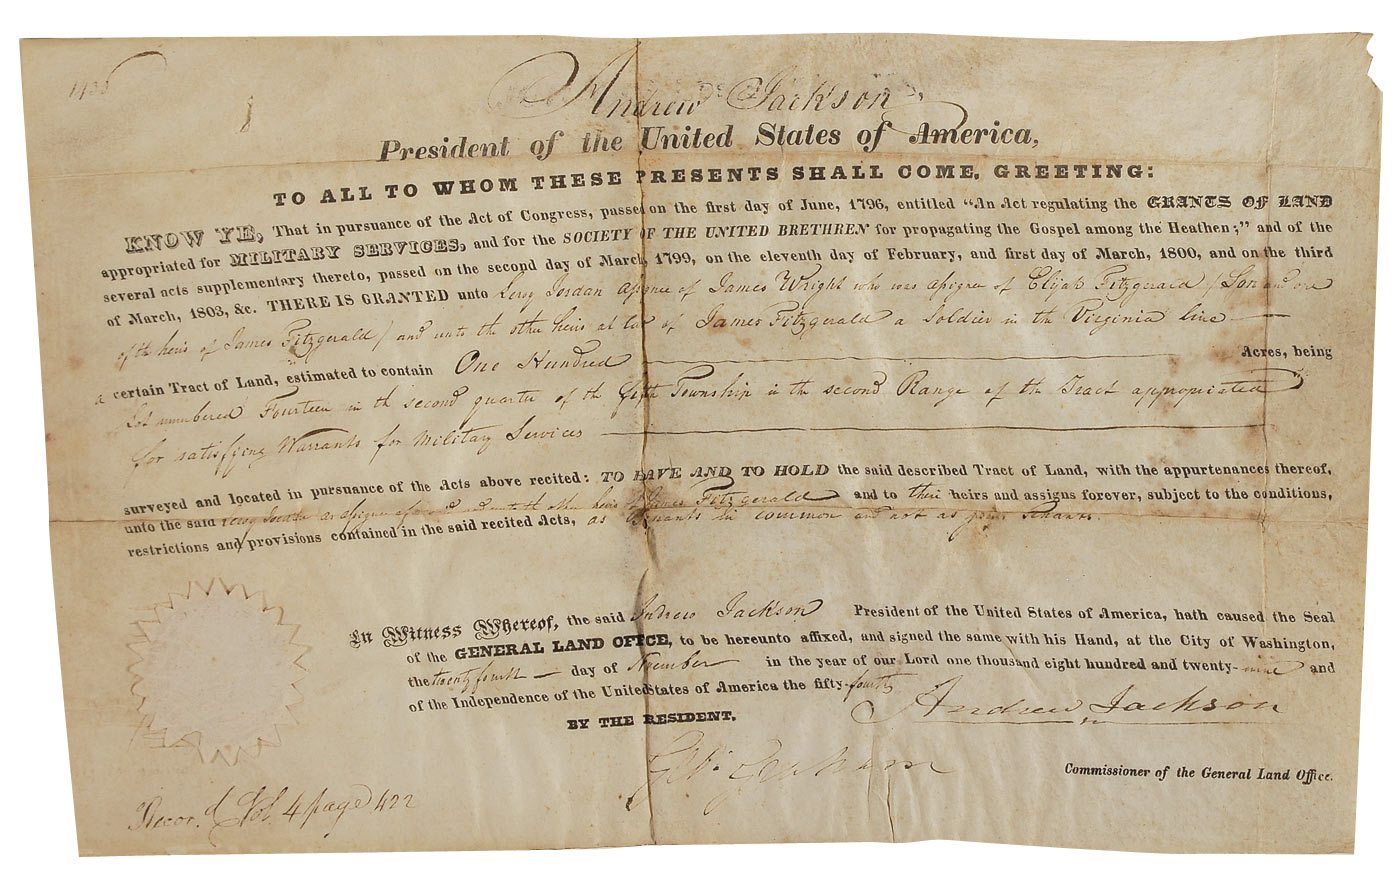 Andrew Jackson,
President of the United States of America,
TO ALL TO WHOM THESE PRESENTS SHALL COME, GREETING:
KNOW YE, That in pursuance of the Act of Congress, passed on the first day of June, 1796, entitled “An Act regulating the GRANTS OF LAND
appropriated for MILITARY SERVICES, and for the SOCIETY OF THE UNITED BRETHREN for propagating the Gospel among the Heathen;” and of the
several acts supplementary thereto, passed on the second day of March, 1799, on the eleventh day of February, and first day of March, 1800, and on the third
of March, 1803, &c. THERE IS GRANTED unto Leroy Jordan assignee of James Wright who was assignee of Elijah Fitzgerald (Son and one
of the heirs of James Fitzgerald) and unto the other heirs at law of James Fitzgerald a Soldier in the Virginia line
a certain Tract of Land, estimated to contain One Hundred Acres, being
Lot numbered Fourteen in the second quarter of the fifth Township in the second Range of the Tract appropriated
for satisfying Warrants for Military Services
surveyed and located in pursuance of the Acts above recited: TO HAVE AND TO HOLD the said described Tract of Land, with the appurtenances thereof,
unto the said Leroy Jordan as assignee and unto the other heirs James Fitzgerald and to their heirs and assigns forever, subject to the conditions,
restrictions and provisions contained in the said recited Acts, as tenants in common and not as joint tenants.
In Witness Whereof, the said Andrew Jackson President of the United States of America, hath caused the Seal
of the GENERAL LAND OFFICE, to be hereunto affixed, and signed the same with his Hand, at the City of Washington,
the twenty fourth day of November in the year of our Lord one thousand eight hundred and twenty-nine and
of the Independence of the United States of America the fifty-fourth
Andrew Jackson
BY THE PRESIDENT,
Geo: Graham
Commissioner of the General Land Office.
Recor.d Vol. 4 page 422